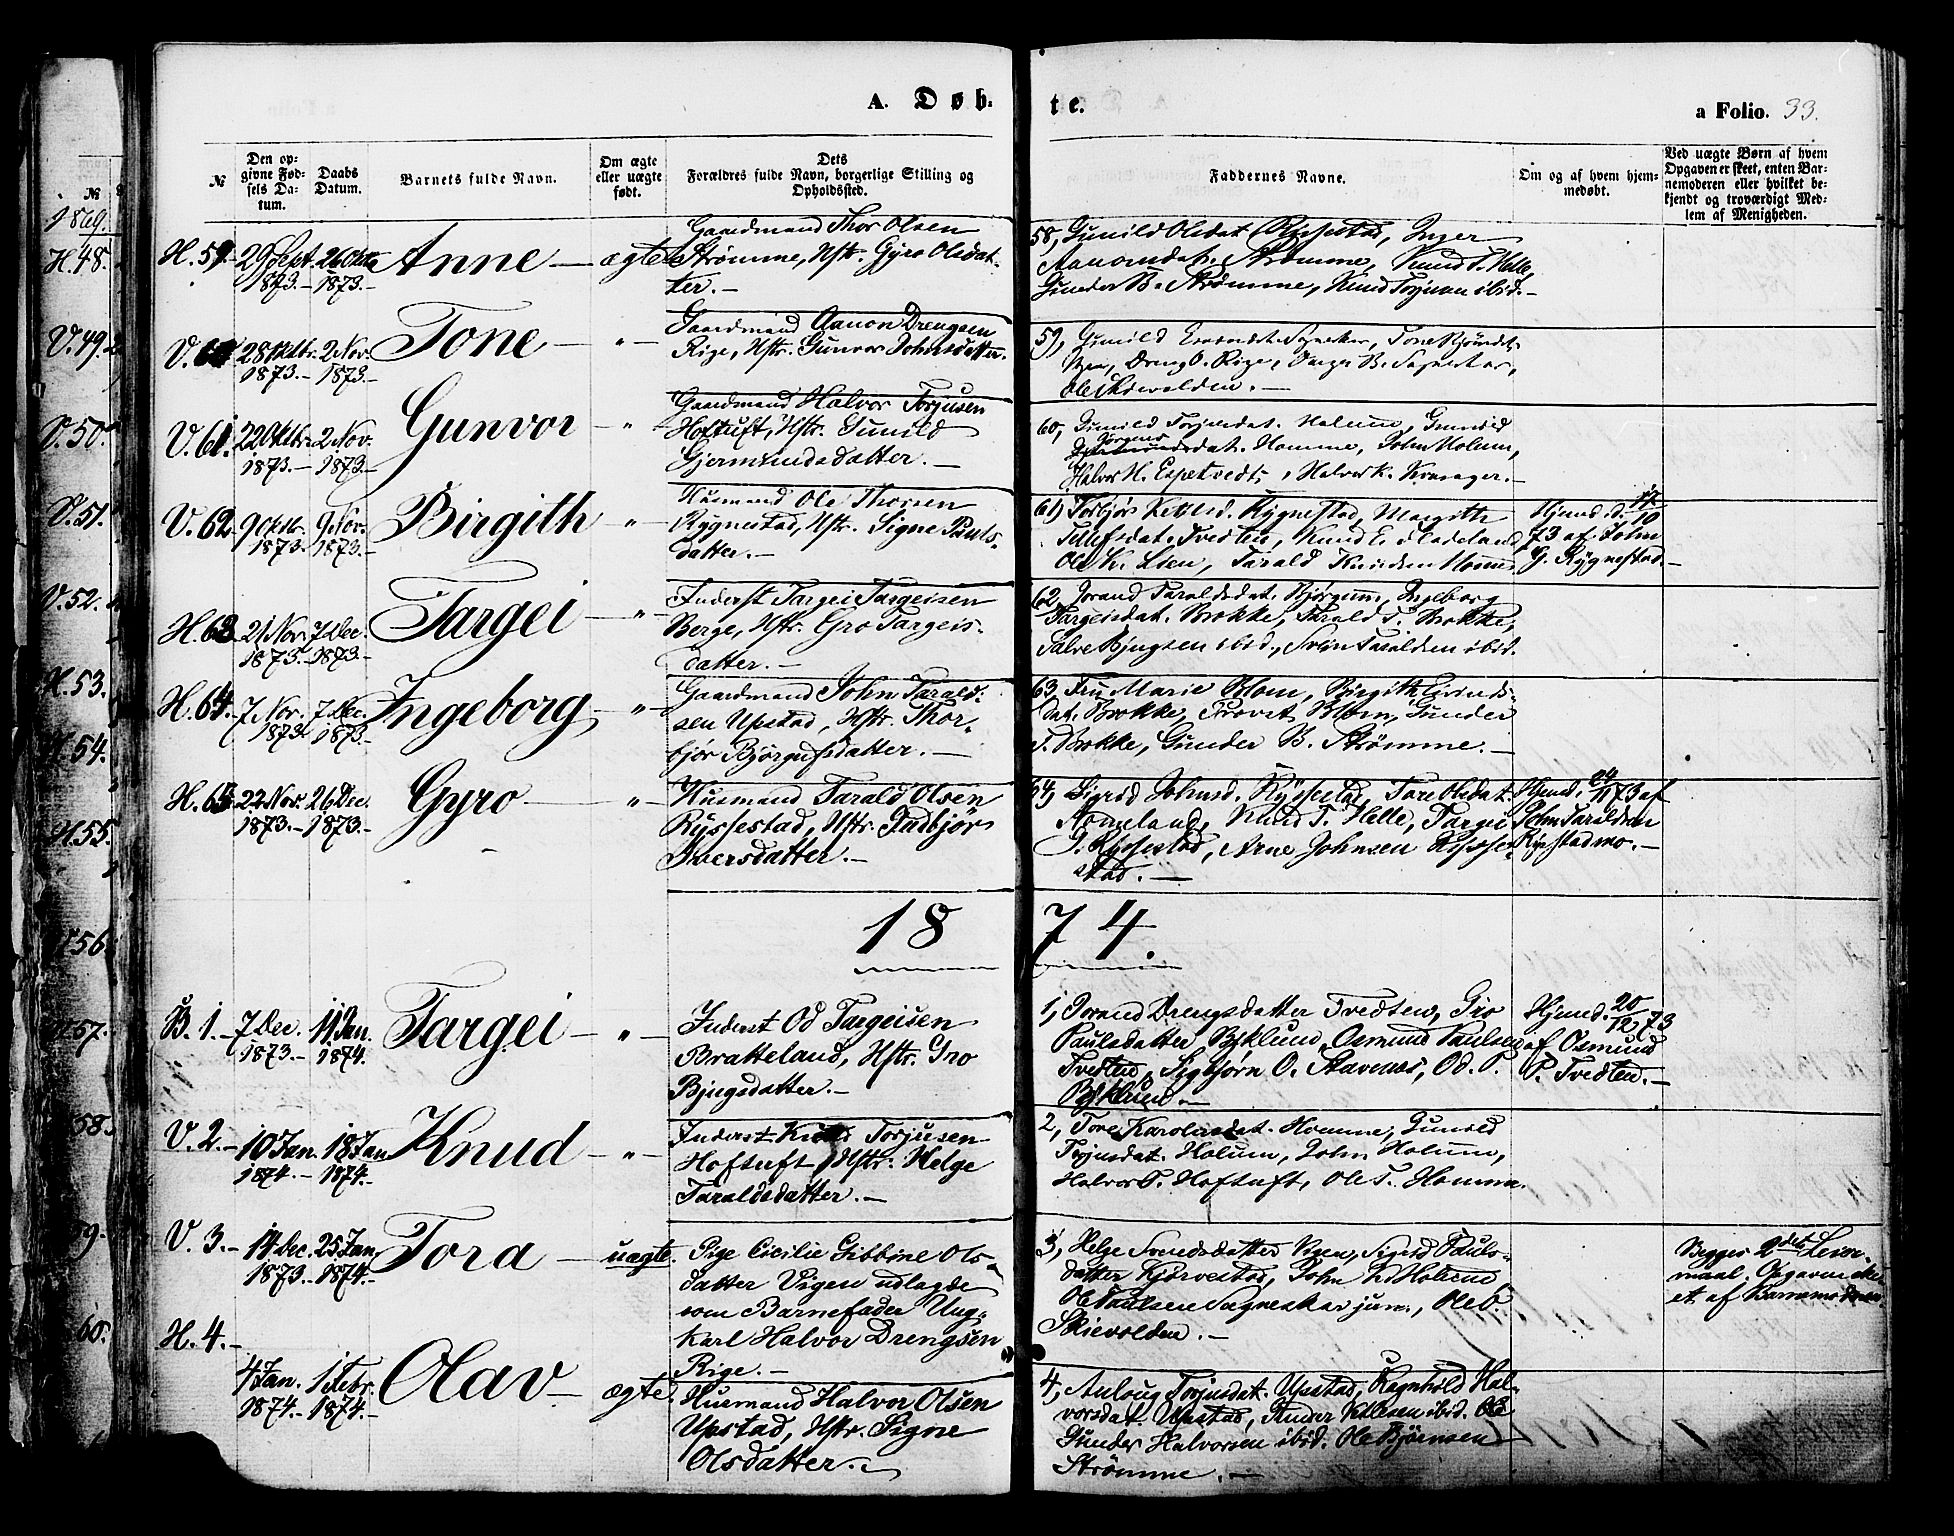 A. Døb-
te.
a Folio. 33.
№
Den op-
givne Fød-
sels Da-
tum.
Daabs
Datum.
Barnets fulde Navn.
Om ægte
eller uægte
født.
Dets
Forældres fulde Navn, borgerlige Stilling og
Opholdssted.
Faddernes Navne.
Om og af hvem hjem-
medøbt.
Ved uægte Børn af hvem
Opgaven er skeet, enten Bar-
nemoderen eller hvilket be-
kjendt og troværdigt Med-
lem af Menigheden.
№
1869.
H. 48.
V. 49.
V. 50.
V. 51.
V. 52.
H. 53.
54.
H. 55.
56.
57.
58.
59.
60.
H. 59.
29 Sept. 1873.-
26 Oktb 1873.-
Anne
ægte
Gaardmand Thor Olsen
Strømme, Hstr. Gyro Olsdat-
ter.-
58, Gunild Olsdat. Rysestad, Inger
Aanonsdat. Strømme, Knud T. Helle,
Gunder B. Strømme, Knud Torjusen ibid.-
V. 60.
28 Oktbr. 1873.-
2 Nov. 1873.-
Tone
- " -
Gaardmand Aanon Drengsen
Rige, Hstr. Gunvor Johnsdatter.
59, Gunild
Tone
Dreng O. Rige,
Ole Skievolden.-
V. 61.
22 Oktbr. 1873.-
2 Nov. 1873.-
Gunvor
- " -
Gaardmand Halvor Torjusen
Hoftuft, Hstr. Gunild
Gjermundsdatter.-
60, Gunild Torjusdat. Holum, Gunild
dat. Homme, John Holum,
Halvor H. Espetvedt, Halvor K.
V. 62.
9 Oktb. 1873.
9 Nov. 1873.-
Birgith
- " -
Husmand Ole Thorsen
Rygnestad, Hstr. Signe Pauls-
datter.-
61, Torbjør Rygnestad, Margith
Tellefsdat. Tvedten, Knud E. Fladeland,
Ole K. Lien, Tarald Knudsen
Hjmd. d. 17/10
73 af John
G. Rygnestad.-
H. 63
21 Nov. 1873.-
7 Dec. 1873.-
Targei
- " -
Inderst Targei Targeisen
Berge, Hstr. Gro Targeis-
datter.-
62, Jorand Taraldsdat. Bjørgum, Ingeborg
Targeisdat. Brokke, Tarald T. Brokke,
Salve Bjugsen ibid., Svein Taraldsen ibid.
H. 64.
7 Nov. 1873.
7 Dec. 1873.-
Ingeborg
- " -
Gaardmand John Tarald-
sen Upstad, Hstr. Thor-
bjør Bjørgufsdatter.-
63, Fru Marie Blom, Birgith Eivinds-
dat. Brokke, Provst Blom, Gunder
T. Brokke, Gunder B. Strømme.-
H. 65.
22 Nov. 1873.-
26 Dec. 1873.-
Gyro
- " -
Husmand Tarald Olsen
Ryssestad, Hstr. Gudbjør
Iversdatter.-
64, Sigrid Johnsd. Ryssestad, Tore Olsdat.
Aameland, Knud T. Helle, Targei
G. Ryssestad, Arne Johnsen Rysse-
stad.-
Hjmd. 24/11 73 af
John Taraldsen
Rysstadmo.-
1874.
B. 1.-
7 Dec. 1873.-
11 Jan. 1874.
Targei
- " -
Inderst Od Targeisen
Bratteland, Hstr. Gro
Bjugsdatter.-
1, Jorand Drengsdatter Tvedten, Gro
Paulsdatter Byklund, Osmund Paulsen
Tvedten, Sigbjørn O. Stavenes, Od. P.
Byklum.-
Hjmd. 20/12 73
af Osmund
P. Tvedten.-
V. 2.-
10 Jan. 1874.-
18 Jan 1874.-
Knud
- " -
Inderst Knud Torjusen
Hoftuft, Hstr. Helge
Taraldsdatter.-
2, Tore Karolusdat. Homme, Gunild
Torjusdat. Holum, John Holum,
Halvor T. Hoftuft, Ole T. Homme.
V. 3.-
14 Dec. 1873.-
25 Jan. 1874.-
Tora
uægte.
Pige Cicilie Gibbine Ols-
datter Vigen udlagde
som Barnefader Ung-
karl Halvor Drengsen
Rige.-
3, Helge Svendsdatter Sigrid Pauls-
datter Kjørvestad, John K. Holum,
Ole Paulsen Sagneskar jun., Ole O.
Skievolden.-
Begges 2det Leier-
maal. Opgaven ske-
et af Barnemoderen.
H. 4.-
4 Jan. 1874.-
1 Febr. 1874.-
Olav
ægte.
Husmand Halvor Olsen
Upstad, Hstr. Signe
Olsdatter.-
4, Aslaug Torjusdat. Upstad, Ragnhild Hal-
vorsdat. Upstad, Gunder ibid. Ole
Gunder Halvorsen ibid. Ole Bjørnsen
Strømme.-